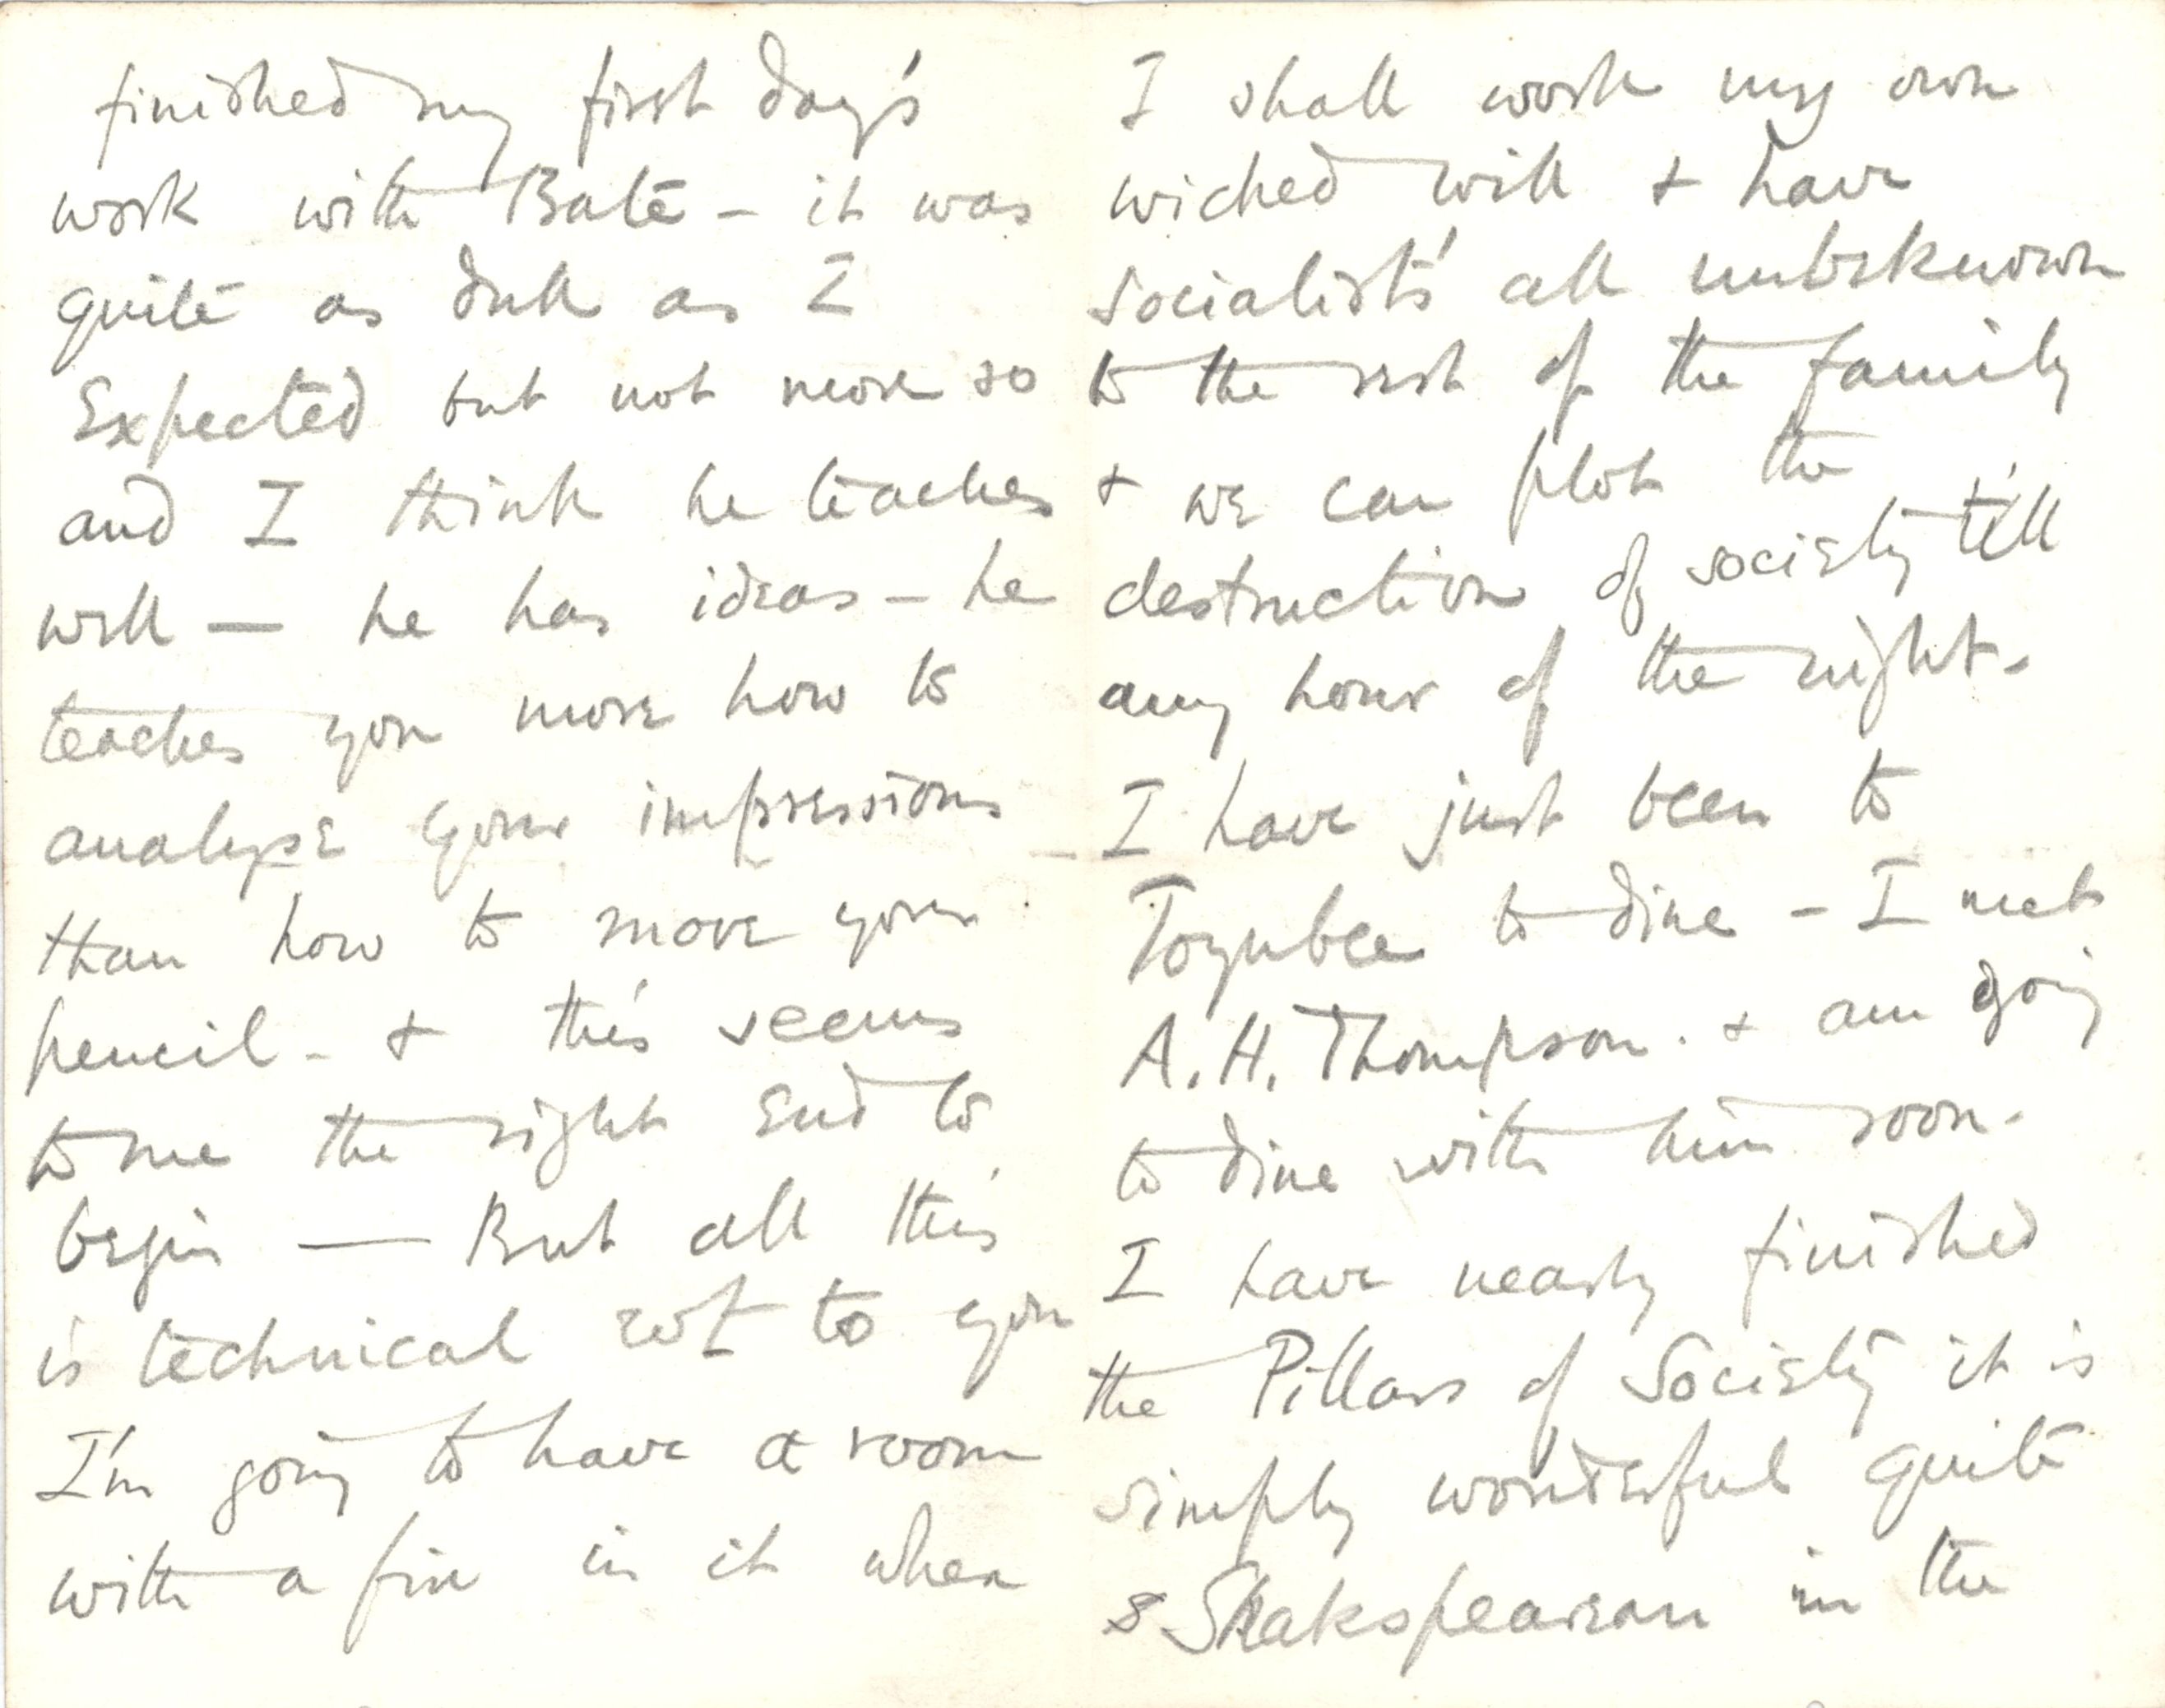 finished my first day's
work with Bate – it was
quite as dull as I
Expected but not more so
and I think he teaches
well — he has ideas – he
teaches you more how to
analyse your impressions
than how to move your
pencil – & this seems
to me the right end to
begin — But all this
is technical rot to you
I'm going to have a room
with a fire in it when
I shall work my own
wicked will & have
socialists all unbeknown
to the rest of the family
& we can plot the
destruction of society till
any hour of the night.
– I have just been to
Toynbee to dine – I met
A. H. Thompson. & am going
to dine with him soon.
I have nearly finished
the Pillars of Society it is
simply wonderful quite
s Shakspearean in the